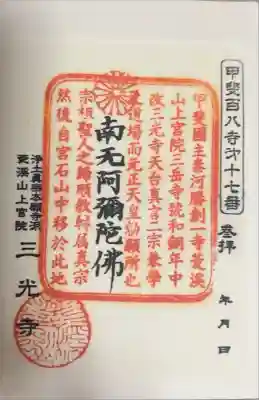 甲斐百八寺才十七番
参拝
年 月 日
甲斐國主秦河勝創一寺菱渓
山上宮院三岳寺號和銅年中
改三光寺天台真言二宗兼學
道場而元正天皇勅願所也
南无阿彌陀佛
宗祖聖人之歸順教 属真宗
然後自宮石山中移於此地
浄土真宗本願寺派
菱溪山上宮院
三光寺